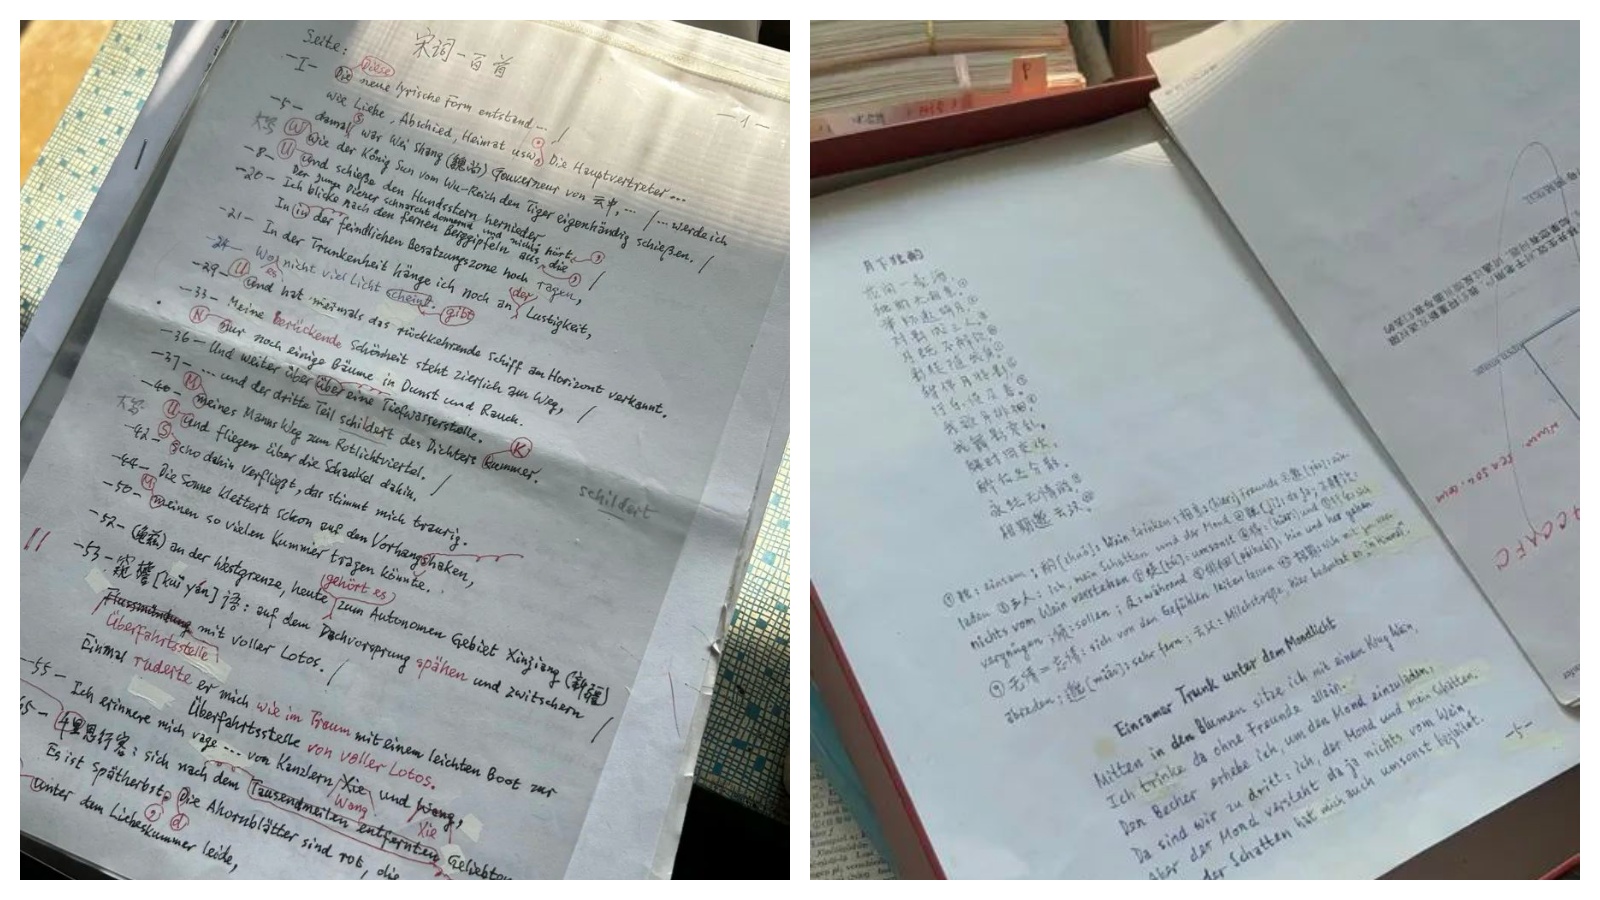 Seite: 宋词一百首
-1-
-I- Die Diese neue lyrische Form entstand... /
-5- wie Liebe, Abschied, Heimat usw. Die Hauptvertreter...
damals war Wei Shang (魏尚) Gouverneur von 云中, ... / ... werde ich
Wie der König Sun vom Wu-Reich den Tiger eigenhändig schießen. /
-8- Und schieße den Hundsstern hernieder
Der junge Diener schnarcht donnernd und nichts hört,
-20- Ich blicke nach den fernen Berggipfeln aus, die /
In in der feindlichen Besatzungszone hoch ragen,
-21- In der Trunkenheit hänge ich noch an der Lustigkeit,
-24- Wo es nicht viel Licht scheint, gibt
-29- Und hat niemals das rückkehrende Schiff am Horizont verkannt.
-33- Meine berückende Schönheit steht zierlich am Weg, /
Nur noch einige Bäume in Dunst und Rauch.
-36- Und weiter über über eine Tiefwasserstelle.
-37- ... und der dritte Teil schildert des Dichters Kummer.
schildert
-40- meines Manns Weg zum Rotlichtviertel. /
Und fliegen über die Schaukel dahin,
-42- So dahin verfließt, das stimmt mich traurig.
-44- Die Sonne klettert schon auf den Vorhangshaken,
-50- meinen so vielen Kummer tragen könnte.
-52- an der Westgrenze, heute gehört es zum Autonomen Gebiet Xinjiang (新疆)
-53- 窥檐 [kuī yán] 语: auf dem Dachvorsprung spähen und zwitschern /
Flussmündung mit voller Lotos. /
Überfahrtsstelle
Einmal ruderte er mich wie im Traum mit einem leichten Boot zur
Überfahrtsstelle von voller Lotos.
-55- Ich erinnere mich vage ... von Kanzlern Xie und Wang,
Wang Xie
千里思行客: sich nach dem Tausendmeilen entfernten Geliebten
Es ist Spätherbst, Die Ahornblätter sind rot, die
unter dem Liebeskummer leide,
月下独酌
花间一壶酒,
独酌无相亲。
举杯邀明月,
对影成三人。
月既不解饮,
影徒随我身。
暂伴月将影,
行乐须及春。
我歌月徘徊,
我舞影零乱。
醒时同交欢,
醉后各分散。
永结无情游,
相期邈云汉。
①独: einsam; 酌[zhuó]: Wein trinken; 相亲: Freunde ②邀[yāo]: ein-
laden ③三人: Ich, mein Schatten und der Mond ④既[jì]: da ja, 不解饮:
nichts vom Wein verstehen ⑤徒[tú]: umsonst
vergnügen; 须: sollen; 及: während [páihuái]: hin und her gehen
无情: sich von den Gefühlen leiten lassen
abreden; 邈[miǎo]: sehr fern; 云汉: Milchstraße, hier bedeutet es „im Himmel".
Einsamer Trunk unter dem Mondlicht
Mitten in den Blumen sitze ich mit einem Krug Wein,
Ich trinke da ohne Freunde allein.
Den Becher erhebe ich, um den Mond einzuladen,
Da sind wir zu dritt: ich, der Mond und mein Schatten.
Aber der Mond versteht da ja nichts vom Wein,
der Schatten hat mich auch umsonst begleitet.
-5-